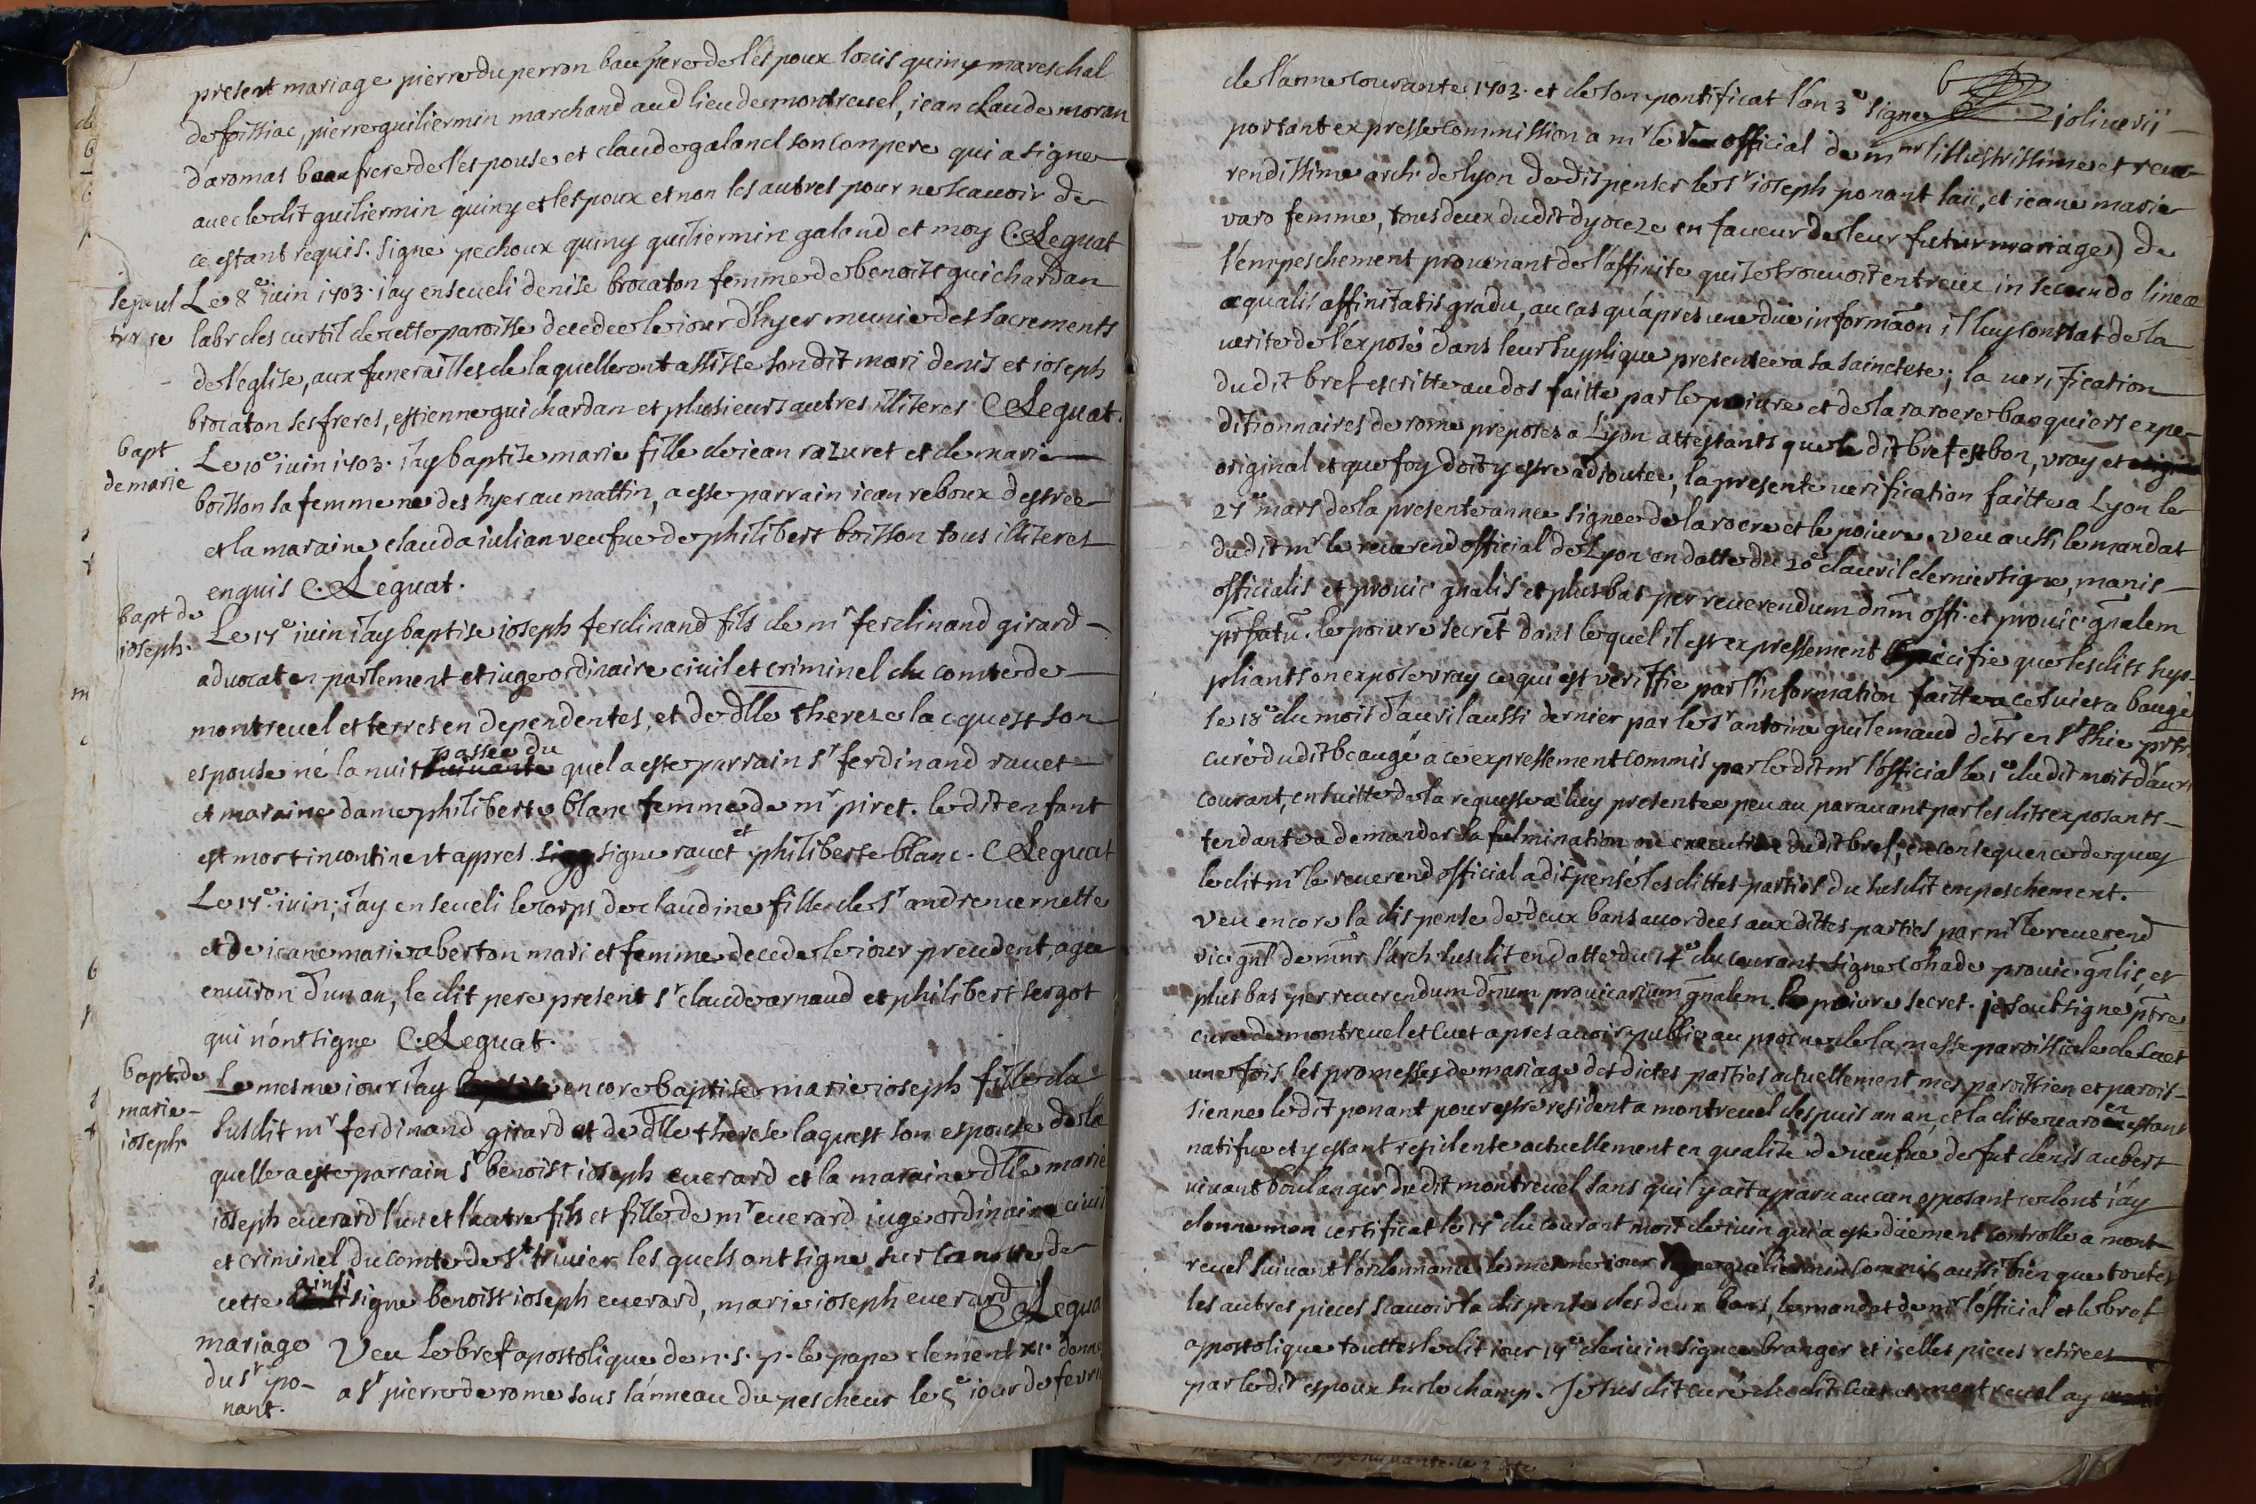 present mariage pierre du perron beaufrere de l'espoux louis quiny mareschal
de foissiac, pierre guiliermin marchand aud lieu de montreuel, jean claude moran
d'aromas beaufrere de l'espouse et claude galand son compere qui a signe
avec le dit guiliermin quiny et l'espoux et non les autres pour ne scauoir de
ce estant requis. signé pechoux quiny guiliermin galand et moy C. Leguat
sepul
ture
Le 8e juin 1703. j'ay enseueli denise brocaton femme de benoist guichardan
labr des curtil de cette paroisse decedee le jour d'hyer munie des sacrements
de l'eglise, aux funerailles de laquelle ont assiste son dit mari denis et joseph
brocaton ses freres, estienne guichardan et plusieurs autres illiteres C Leguat.
bapt
de marie
Le 10e juin 1703. j'ay baptise marie fille de jean razuret et de marie
boisson sa femme nee des hyer au mattin, a esté parrain jean reboux d'estree
et la maraine clauda julian veufue de philibert boisson tous illiteres
enquis C. Leguat.
bapt de
joseph.
Le 17e juin j'ay baptise joseph ferdinand fils de mr ferdinand girard
aduocat en parlement et juge ordinaire ciuil et criminel du comte de
montreuel et terres en dependentes, et de dlle therese lacquest son
espouse né la nuit passée du quel a esté parrain sr ferdinand rauet
et maraine dame philiberte blanc femme de mr piret. le dit enfant
est mort incontinent appres. signe rauet et philiberte blanc. C Leguat
Le 17e juin; j'ay enseueli le corps de claudine fille de sr andre uernette
et de jeane marie aberton mari et femme decedee le jour precedent agee
enuiron d'un an, le dit pere present sr claude arnaud et philibert sergot
qui n'ont signe C. Leguat.
bapt. de
marie
joseph
Le mesme jour j'ay encore baptise marie joseph fille du
susdit mr ferdinand girard et de dlle therese laquest son espouse de la
quelle a esté parrain sr benoist joseph euerard et la maraine dlle marie
joseph euerard l'un et l'autre fils et fille de mr euerard juge ordinaire ciuil
et criminel du comte de st triuier les quels ont signe sur la notte de
cette ainsi signe benoist joseph euerard, marie joseph euerard C Leguat
mariage
du sr po-
nant.
Veu le bref apostolique de n. s. p. le pape clement xi. donne
a st pierre de rome sous l'anneau du pescheur le 5e jour de feurier
6
de l'anne courante 1703. et de son pontificat l'an 3e signe joliuerii
portant expresse commission a mr le official de mgr l'illustrissime et reue-
rendissime arch. de lyon de dispenser le sr joseph ponant laic, et jeane marie
varo femme, tous deux dudit dyoceze en faueur de leur futur mariage) de
l'empeschement prouenant de l'affinite qui se trouuoit entre eux in secundo linea
aequalis affinitatis gradu, au cas qu'apres une due informaõn il luy constat de la
uerite de l'exposé dans leur supplique presentee a sa sainctete; la uerification
dudit bref escritte au dos faitte par le poiure et de la raroere banquiers expe-
ditionnaires de rome preposez a Lyon attestants que le dit bref est bon, vray et
original et que foy doit y estre adjoutee, la presente uerification faitte a Lyon le
27e mars de la presente annee signee de la rocre et le poiure. veu aussi le mandat
dudit mr le reuerend official de Lyon en datte du 20e d'auril dernier signe, manis
officialis et prouic gnalis et plus bas per reuerendum dnm offi. et prouic. gnalem
prfatu. le poiure secret dans lequel il est expressement specifie que lesdits sup-
pliants on exposé vray ce qui est veriffie par l'information faitte a ce suiet a baugé
le 18e du mois d'auril aussi dernier par le sr antoine guilemaud dctr en ste thie prtr
curé dudit beaugé a ce expressement commis par le dit mr l'official le 1e dudit mois d'auril
courant, ensuitte de la requeste a luy presentee peu au parauant par lesdits exposants
tendante a demander la fulmination ou execution dudit bref; en consequence de quoy
le dit mr le reuerend official a dispensé lesdittes parties du susdit empeschement.
veu encore la dispense de deux bans accordees aux dittes parties par mr le reuerend
vic gnl de mgr l'arch susdit en datte du 14e du courant signe cohade prouic gnlis, et
plus bas per reuerendum dnum prouicarium gnalem. le poiure secret. je soubsigne ptre
curé de montreuel et cuet apres auoir publie au prosne de la messe paroissiale de Cuet
une fois les promesses de mariage des dictes parties actuellement mes paroissien et parois-
sienne le dit ponant pour estre resident a montreuel despuis un an, et la ditte uaro en estant
natifue et y estant residente actuellement en qualite de ueufue de fut denis aubert
uiuant boulanger dudit montreuel sans qu'il y ait apparu aucun opposant ce dont j'ay
donne mon certificat le 17e du courant mois de juin qui a esté düement controlle a mont-
reuel suiuant l'ordonnance le mesme jour signe guiliermin commis aussi bien que toutes
les autres pieces scauoir la dispense des deux bans, le mandat de mr l'official et le bref
apostolique touttes le dit jour 17e de juin signee branger et icelles pieces retirees
par le dit espoux sur le champ. Je susdit curé dudit Cuet et montreuel ay